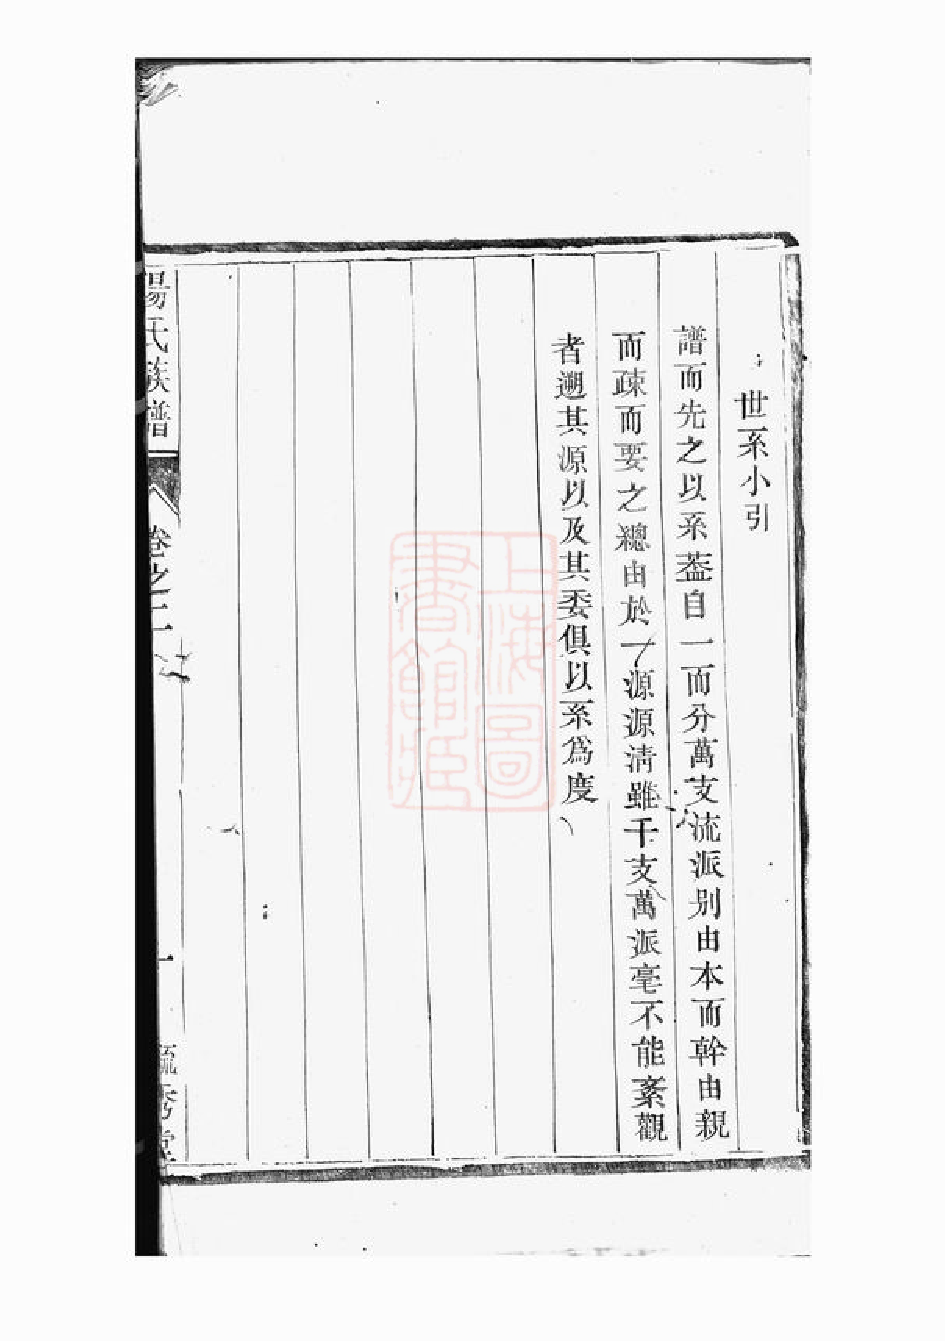 世系小引
譜而先之以系葢自一而分萬支流派别由本而幹由親
而疎而要之總由於一源源淸雖千支萬派毫不能紊觀
者遡其源以及其委俱以系爲度
楊氏族譜
卷之二
一
毓秀堂
上海圖
書館藏